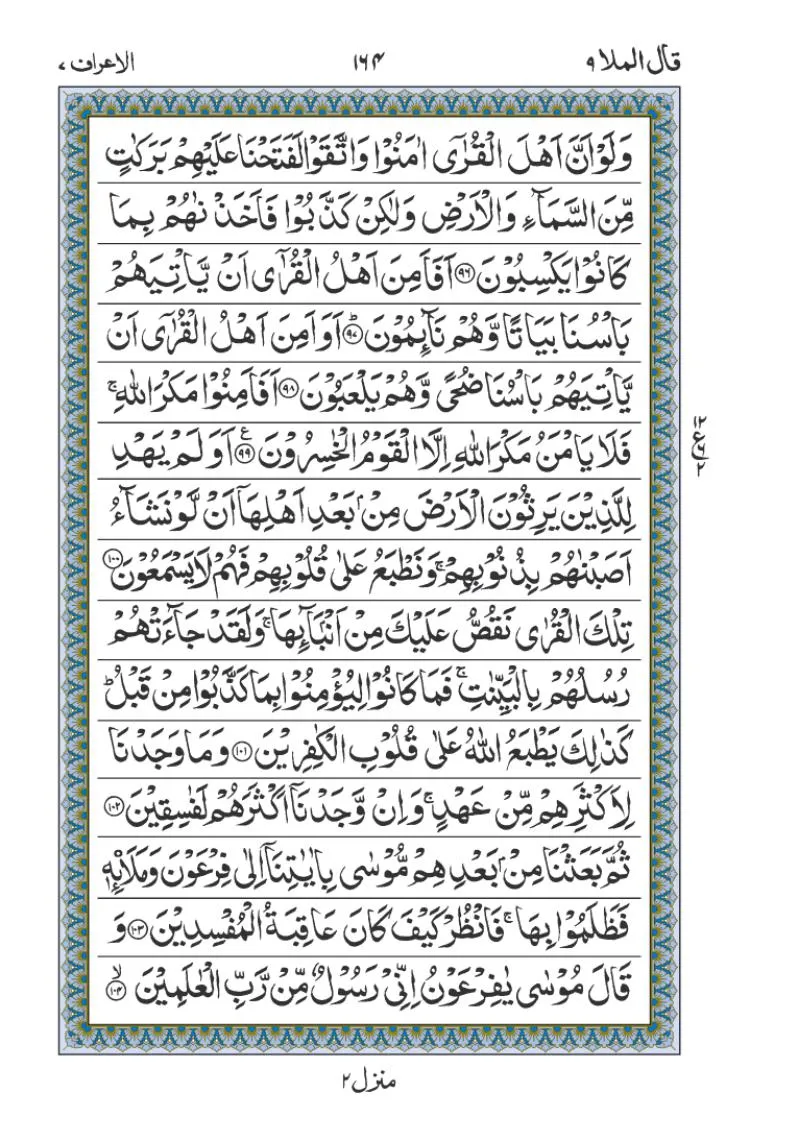 قال الملا ۹
۱۶۴
الاعراف ۷
وَلَوْ اَنَّ اَهْلَ الْقُرٰۤى اٰمَنُوْا وَاتَّقَوْا لَفَتَحْنَا عَلَيْهِمْ بَرَكٰتٍ
مِّنَ السَّمَآءِ وَالْاَرْضِ وَلٰكِنْ كَذَّبُوْا فَاَخَذْ نٰهُمْ بِمَا
كَانُوْا يَكْسِبُوْنَ ﴿۹۶﴾ اَفَاَمِنَ اَهْلُ الْقُرٰۤى اَنْ يَّاْتِيَهُمْ
بَاْسُنَا بَيَاتًا وَّهُمْ نَآئِمُوْنَ ؕ﴿۹۷﴾ اَوَ اَمِنَ اَهْلُ الْقُرٰۤى اَنْ
يَّاْتِيَهُمْ بَاْسُنَا ضُحًى وَّهُمْ يَلْعَبُوْنَ ﴿۹۸﴾ اَفَاَمِنُوْا مَكْرَ اللّٰهِ ۚ
فَلَا يَاْمَنُ مَكْرَ اللّٰهِ اِلَّا الْقَوْمُ الْخٰسِرُوْنَ ﴿۹۹﴾ ع اَوَ لَمْ يَهْدِ
لِلَّذِيْنَ يَرِثُوْنَ الْاَرْضَ مِنْۢ بَعْدِ اَهْلِهَاۤ اَنْ لَّوْ نَشَآءُ
اَصَبْنٰهُمْ بِذُنُوْبِهِمْ ۚ وَنَطْبَعُ عَلٰى قُلُوْبِهِمْ فَهُمْ لَا يَسْمَعُوْنَ ﴿۱۰۰﴾
تِلْكَ الْقُرٰى نَقُصُّ عَلَيْكَ مِنْ اَنْۢبَآئِهَا ۚ وَلَقَدْ جَآءَتْهُمْ
رُسُلُهُمْ بِالْبَيِّنٰتِ ۚ فَمَا كَانُوْا لِيُؤْمِنُوْا بِمَا كَذَّبُوْا مِنْ قَبْلُ ؕ
كَذٰلِكَ يَطْبَعُ اللّٰهُ عَلٰى قُلُوْبِ الْكٰفِرِيْنَ ﴿۱۰۱﴾ وَمَا وَجَدْنَا
لِاَكْثَرِهِمْ مِّنْ عَهْدٍ ۚ وَاِنْ وَّجَدْنَاۤ اَكْثَرَهُمْ لَفٰسِقِيْنَ ﴿۱۰۲﴾
ثُمَّ بَعَثْنَا مِنْۢ بَعْدِ هِمْ مُّوْسٰى بِاٰيٰتِنَاۤ اِلٰى فِرْعَوْنَ وَمَلَا۟ئِهٖ
فَظَلَمُوْا بِهَا ۚ فَانْظُرْ كَيْفَ كَانَ عَاقِبَةُ الْمُفْسِدِيْنَ ﴿۱۰۳﴾ وَ
قَالَ مُوْسٰى يٰفِرْعَوْنُ اِنِّىْ رَسُوْلٌ مِّنْ رَّبِّ الْعٰلَمِيْنَ ۙ﴿۱۰۴﴾
۱۲
ع ۶
۲
منزل ۲